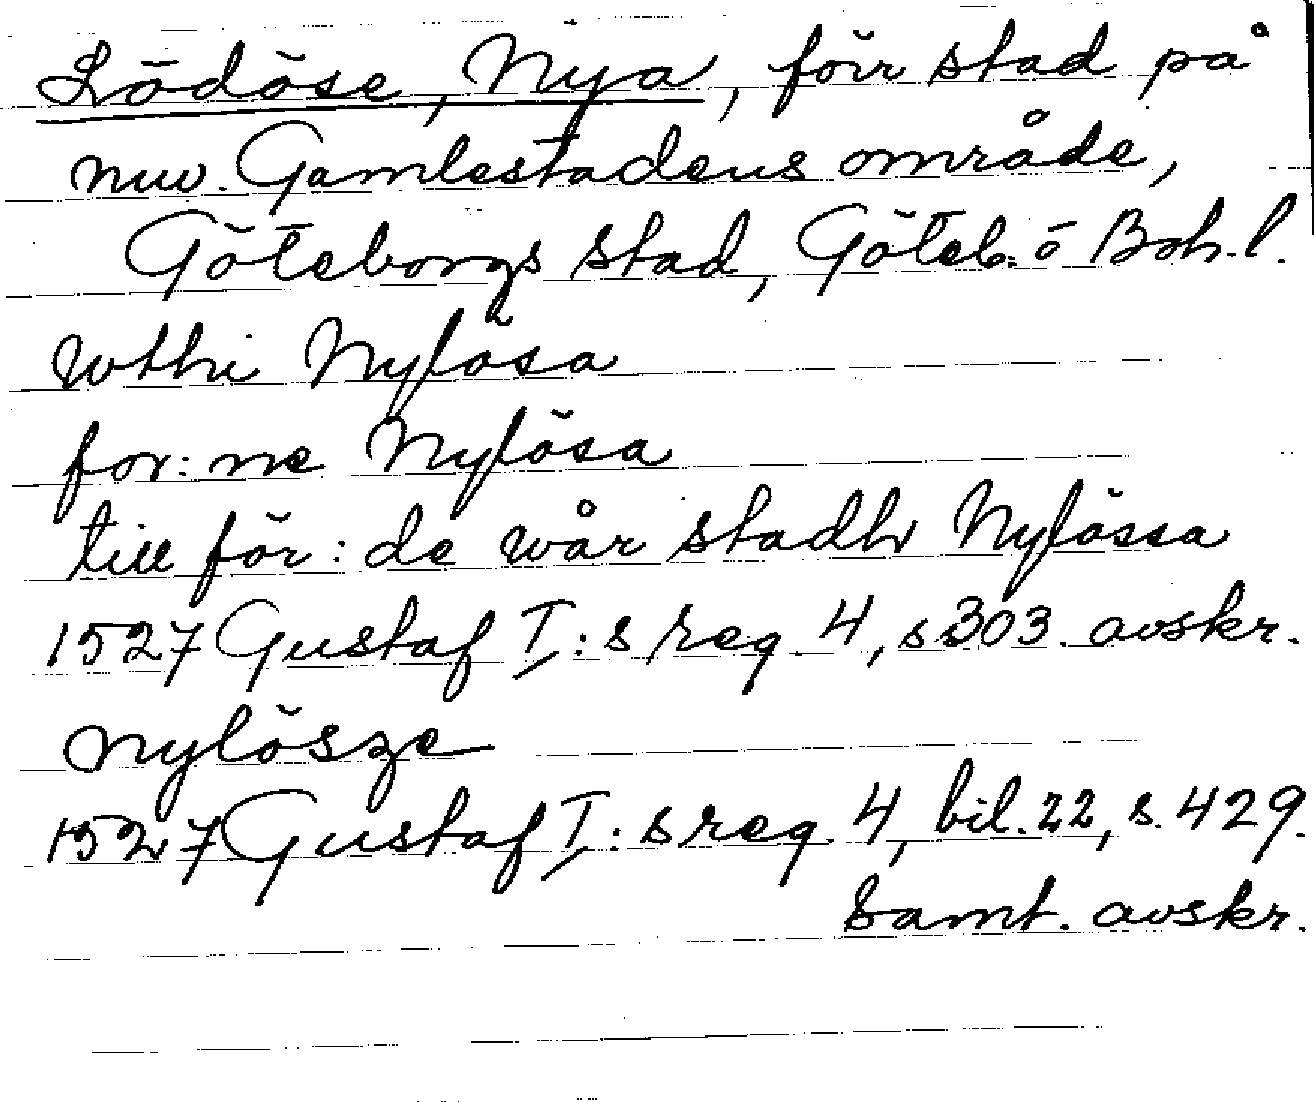 Lödöse, Nya, förr stad på
nuv. Gamlestadens område,
Göteborgs stad, Göteb. o Boh. l.
wthi Nylösa
for: ne Nylösa
till för: de wår stadh Nylössa
1527 Gustaf I:s reg. 4, s 303. avskr.
nylösze
1527 Gustaf I:s reg. 4, bil. 22, s. 429.
Samt. avskr.